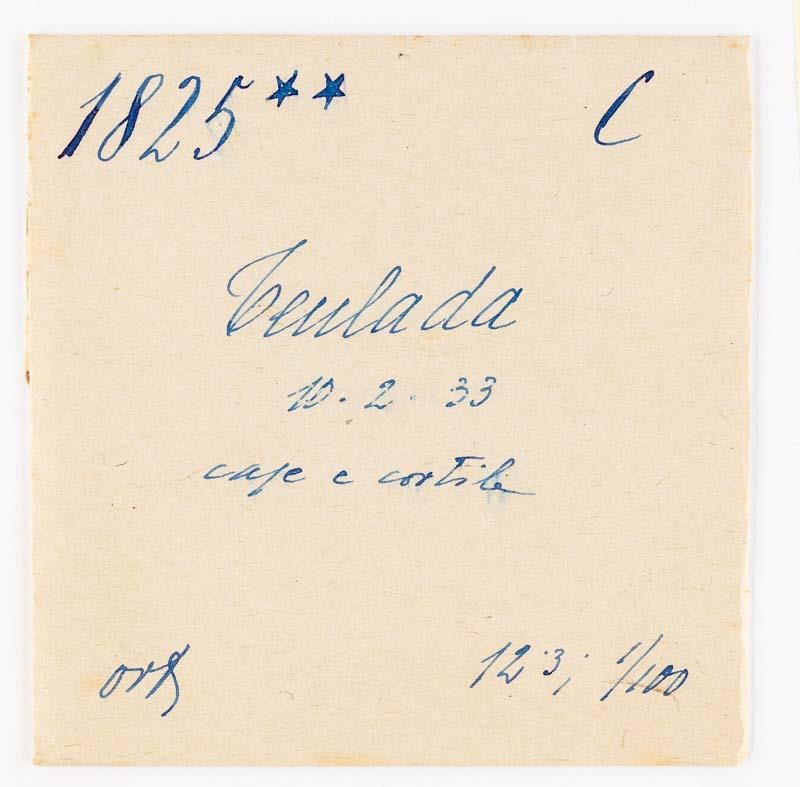 1825** C
Teulada
10. 2. 33
case e cortile
12·3; 1/100